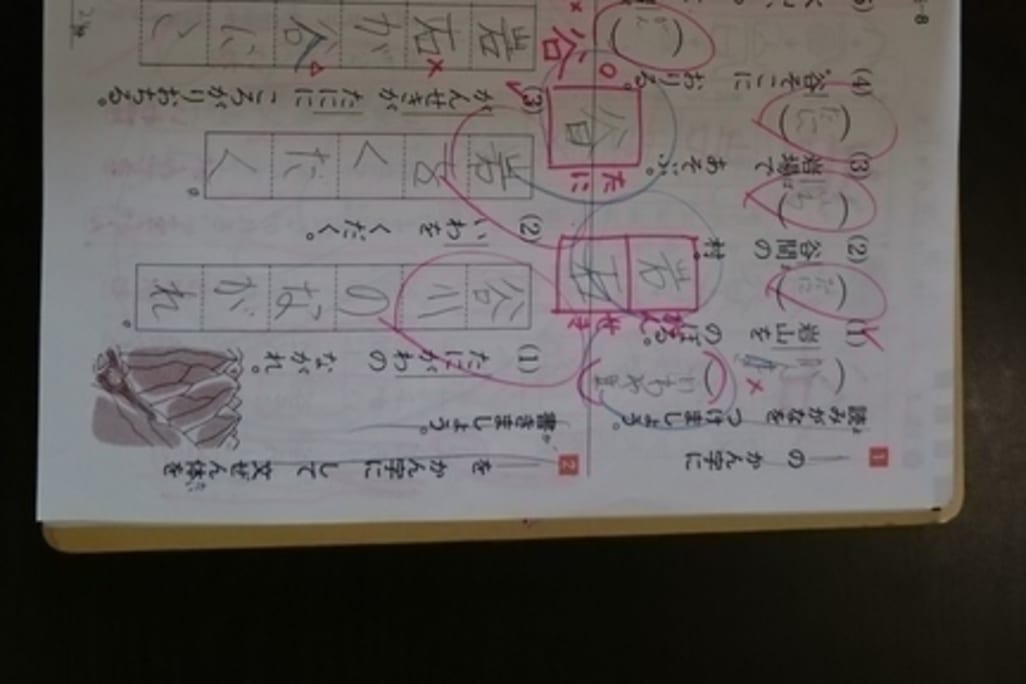 1
――のかん字に
読みがなをつけましょう。
(1) 岩山をのぼる。
いわやま
×
(2) 谷間の村。
たに
(3) 岩場であそぶ。
いわ
(4) 谷そこにおりる。
たに
(5)
がんせき
岩石
たに
谷
2
――をかん字にして文ぜん体を
書きましょう。
(1) たにがわのながれ。
谷川のながれ。
(2) いわをくだく。
岩をくだく。
(3) がんせきがたににころがりおちる。
岩石が谷にこ
谷
8